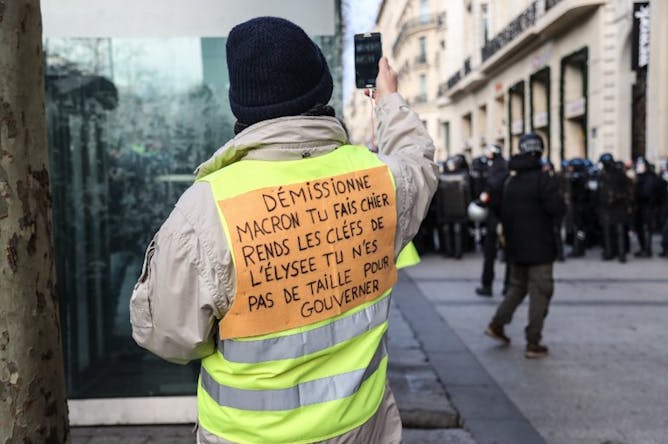 DÉMISSIONNE
MACRON TU FAIS CHIER
RENDS LES CLÉFS DE
L'ÉLYSEE TU N'ES
PAS DE TAILLE POUR
GOUVERNER